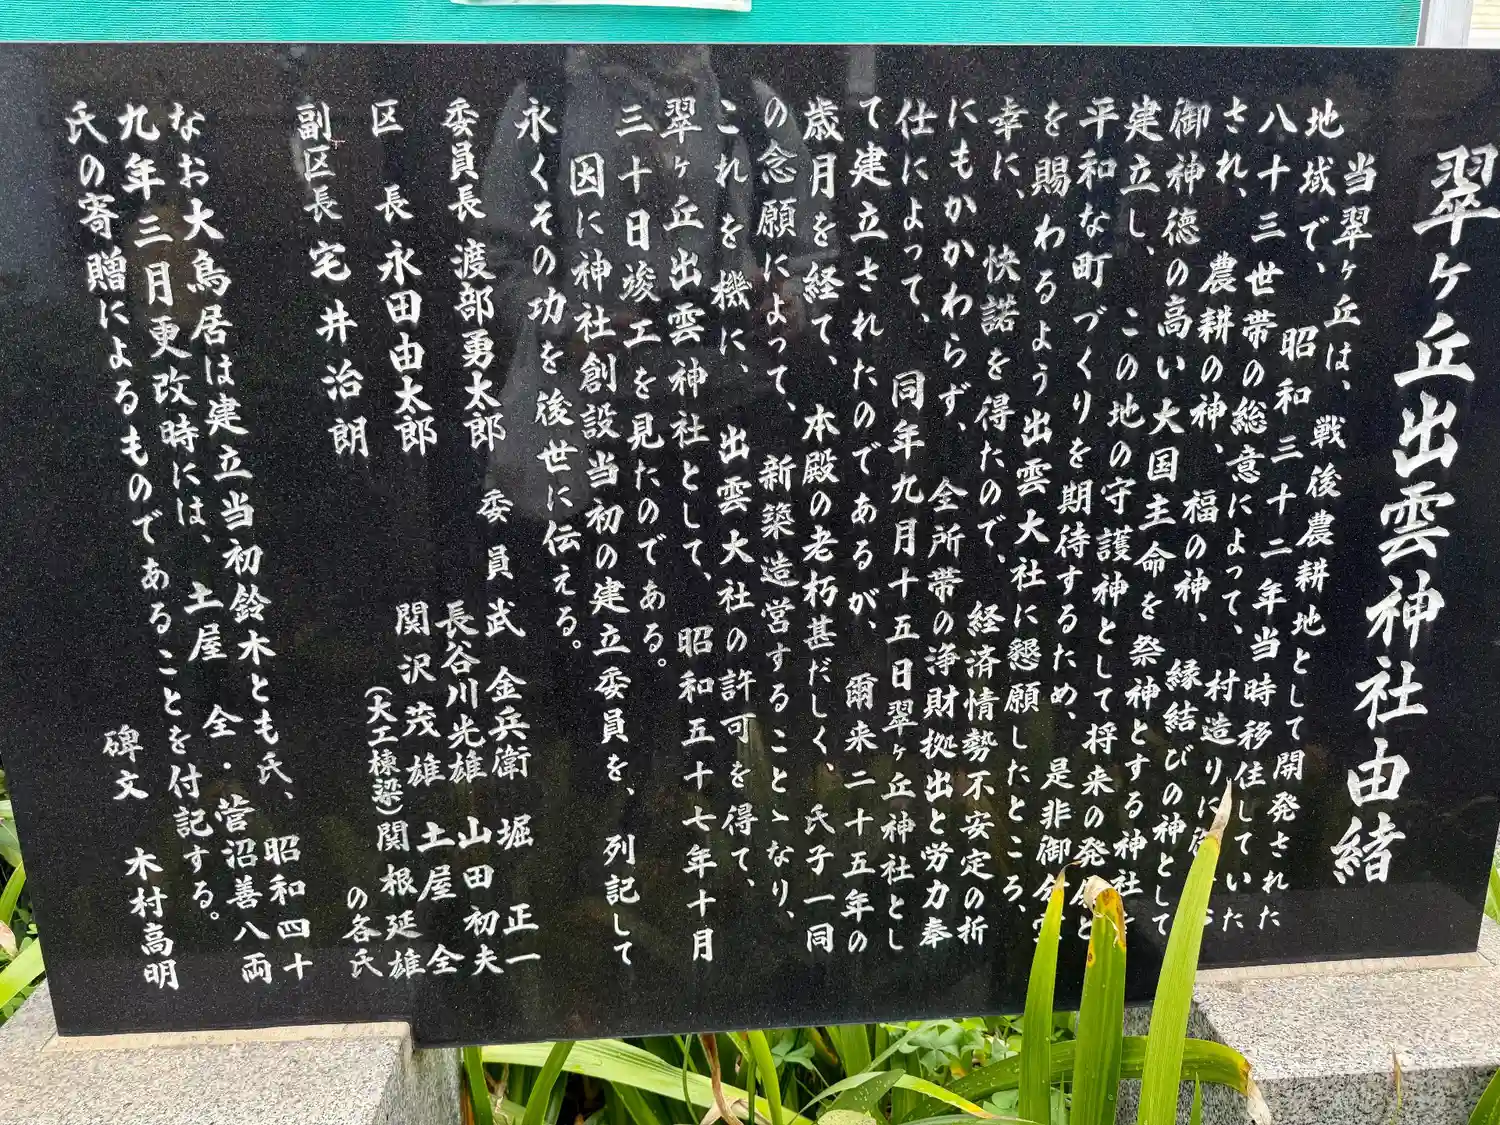 翠ヶ丘出雲神社由緒
当翠ヶ丘は、戦後農耕地として開発された
地域で、昭和三十二年当時移住していた
八十三世帯の総意によって、村造りに
され、農耕の神、福の神、縁結びの神として
御神徳の高い大国主命を祭神とする神社
建立し、この地の守護神として将来の発展と
平和な町づくりを期待するため、是非御分
を賜わるよう出雲大社に懇願したところ、
幸に、快諾を得たので、経済情勢不安定の折
にもかかわらず、全所帯の浄財拠出と労力奉
仕によって、同年九月十五日翠ヶ丘神社とし
て建立されたのであるが、爾来二十五年の
歳月を経て、本殿の老朽甚だしく、氏子一同
の念願によって、新築造営することゝなり、
これを機に、出雲大社の許可を得て、
翠ヶ丘出雲神社として、昭和五十七年十月
三十日竣工を見たのである。
因に神社創設当初の建立委員を、列記して
永くその功を後世に伝える。
委員長 渡部勇太郎 委員 武金兵衛 堀正一
区長 永田由太郎 長谷川光雄 山田初夫
副区長 宅井治朗 関沢茂雄 土屋全
(大工棟梁)関根延雄
の各氏
なお大鳥居は建立当初鈴木とも氏、昭和四十
九年三月更改時には、土屋全・菅沼善八両
氏の寄贈によるものであることを付記する。
碑文 木村高明